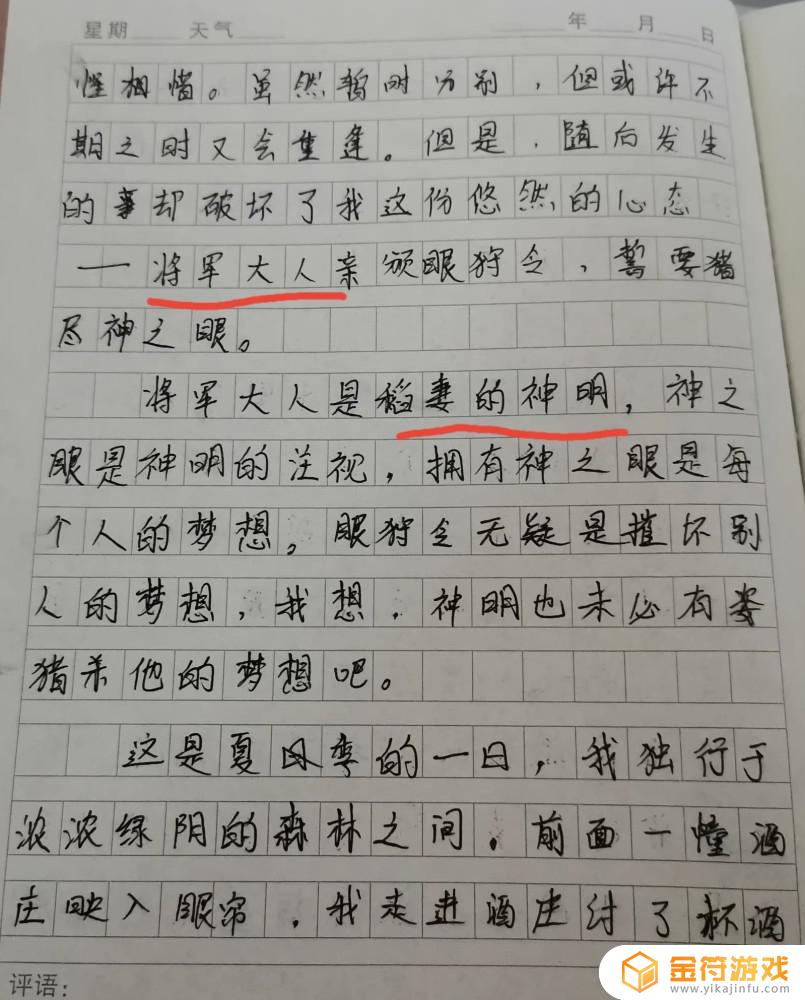 星期 天气 年 月 日
惺相惜。虽然暂时分别，但或许不
期之时又会重逢。但是，随后发生
的事却破坏了我这份悠然的心态
——将军大人亲颁眼狩令，誓要猎
尽神之眼。
将军大人是稻妻的神明，神之
眼是神明的注视，拥有神之眼是每
个人的梦想。眼狩令无疑是摧坏别
人的梦想，我想，神明也未必有要
猎杀他的梦想吧。
这是夏风季的一日，我独行于
浓浓绿阴的森林之间。前面一幢酒
庄映入眼帘，我走进酒庄付了杯酒
评语：
金符游戏
www.yikajinfu.com